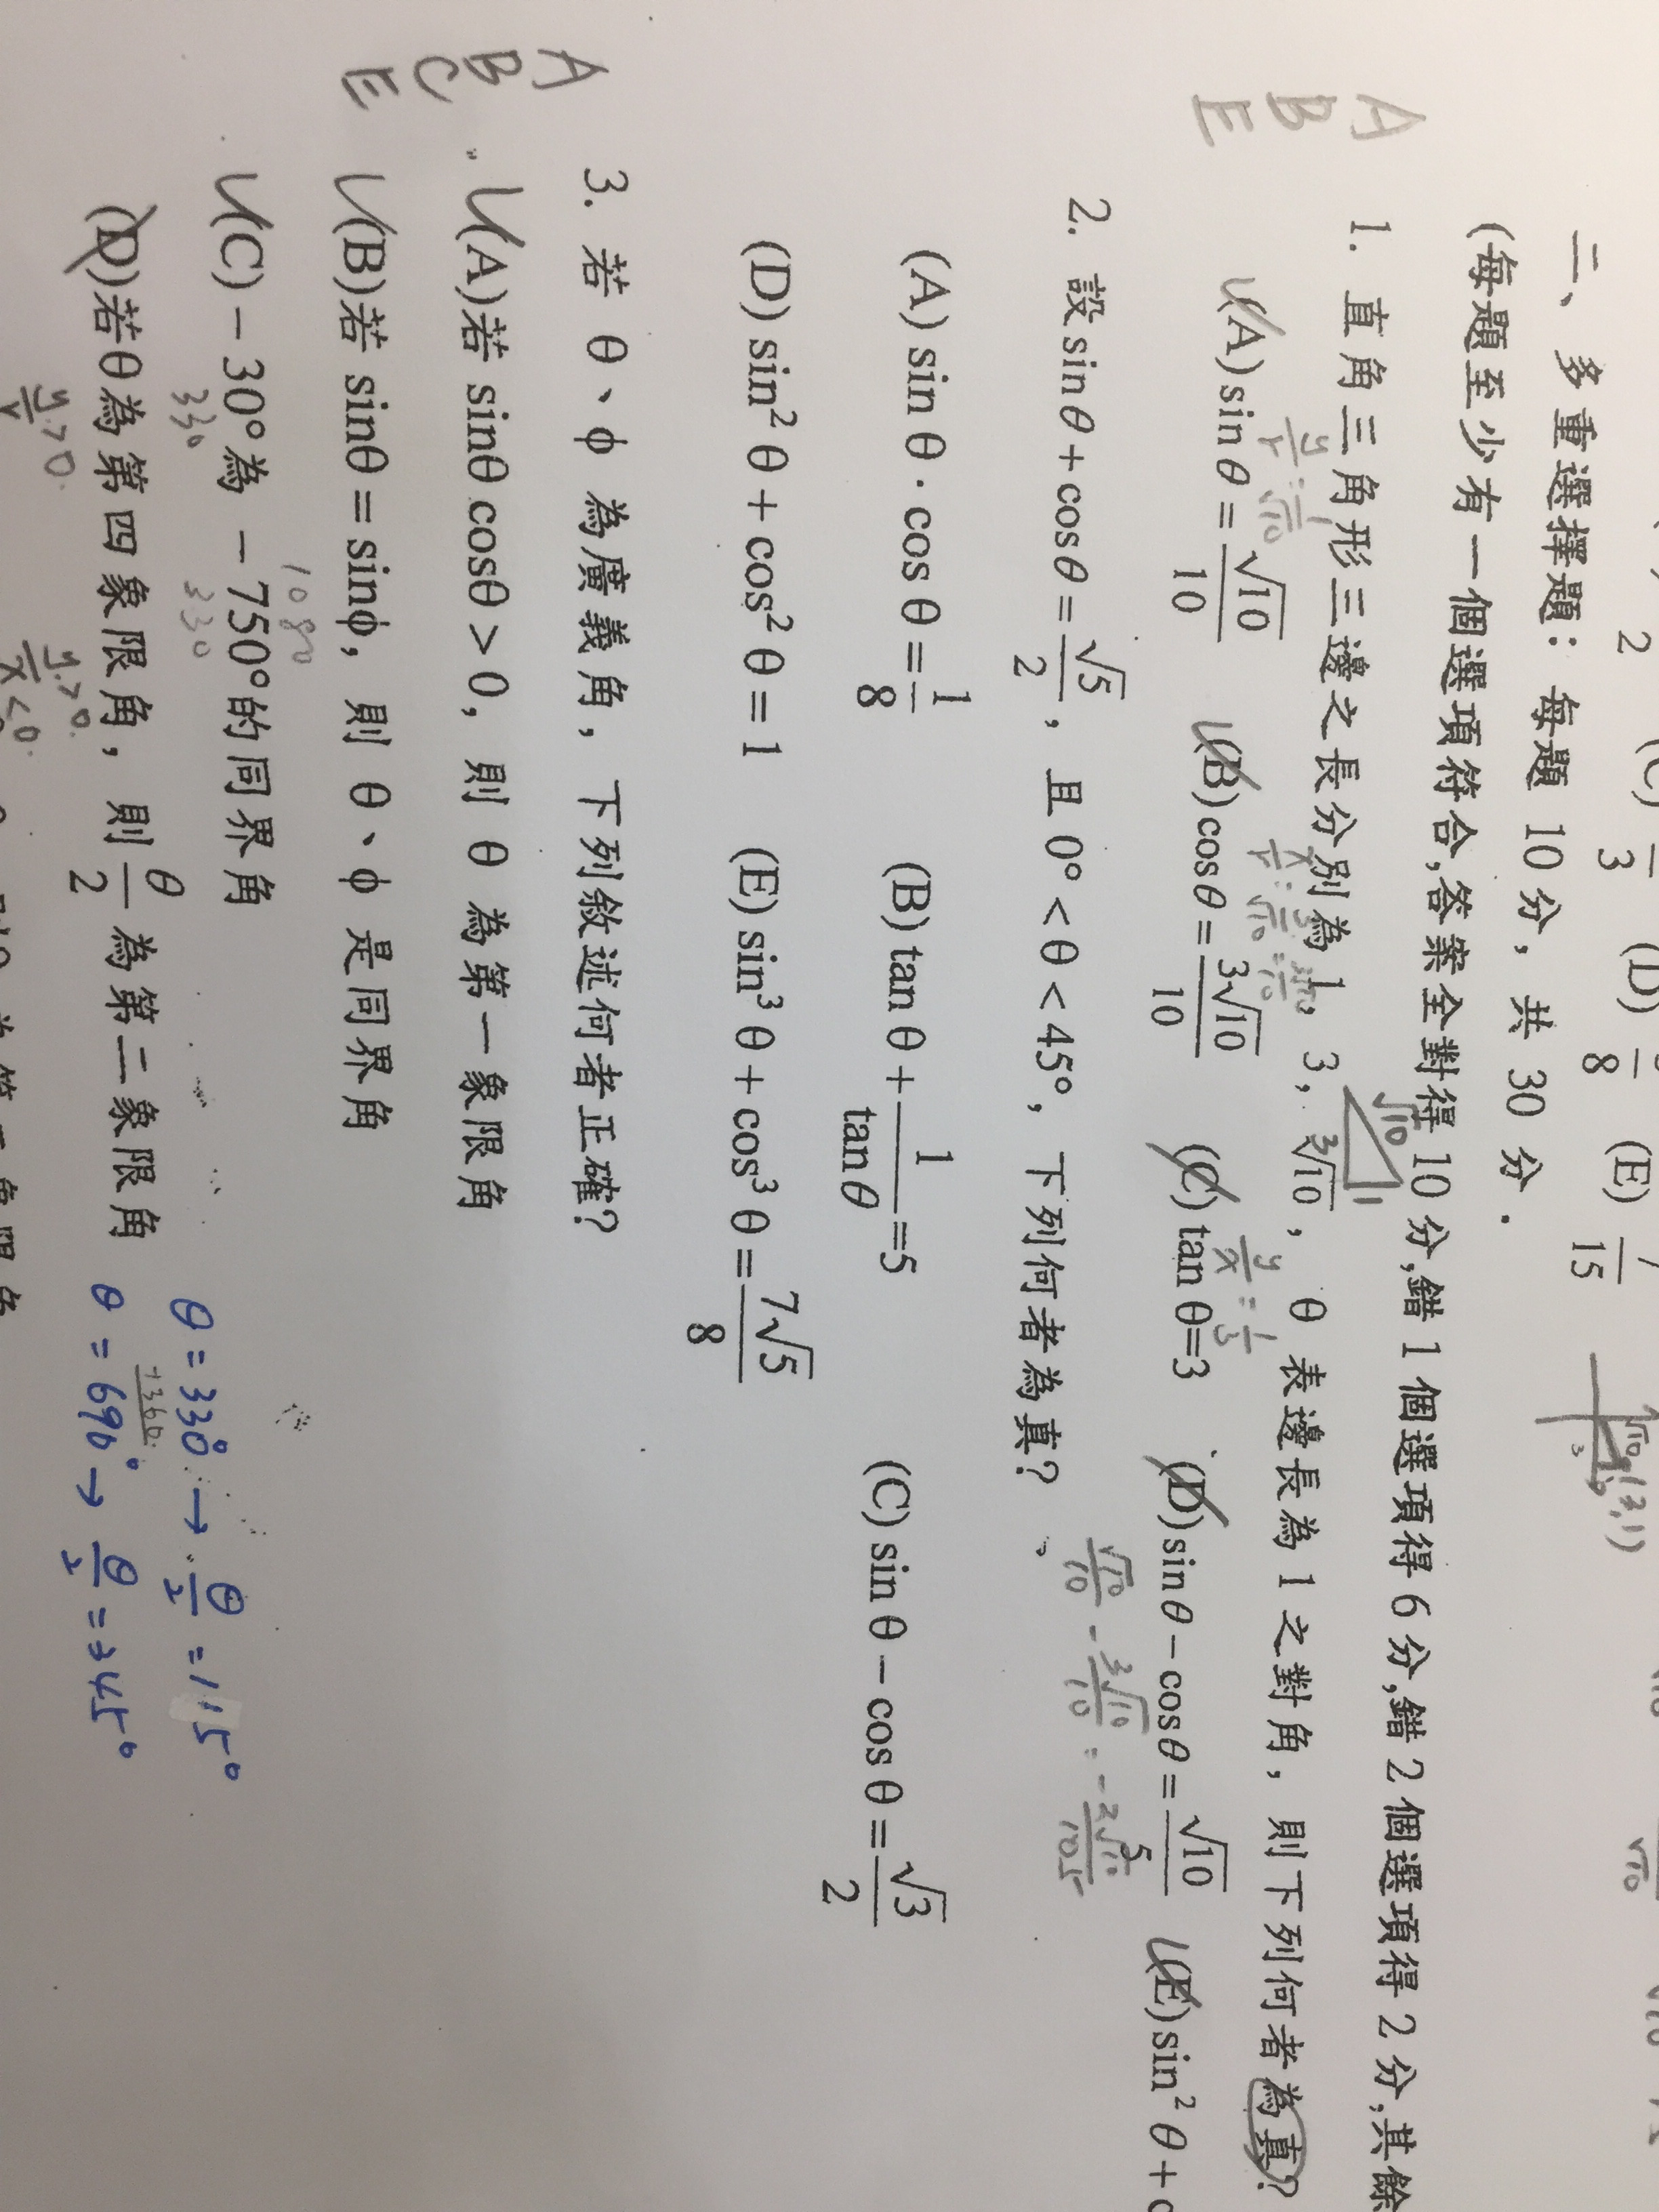 2 (C) 3 (D) 8 (E) 7/15
二、多重選擇題：每題 10 分，共 30 分.
(每題至少有一個選項符合,答案全對得 10 分,錯 1 個選項得 6 分,錯 2 個選項得 2 分,其餘
A
B
E
1. 直角三角形三邊之長分別為 1, 3, √10, θ 表邊長為 1 之對角, 則下列何者為真?
√10 1 3
√10 (3,1) 3
y/r = 1/√10
x/r = 3/√10 = 3√10/10
y/x = 1/3
(A) sin θ = √10/10 (B) cos θ = 3√10/10 (C) tan θ=3 (D) sin θ − cos θ = √10/5 (E) sin² θ +
√10/10 - 3√10/10 = -2√10/10
2. 設 sin θ + cos θ = √5/2, 且 0° < θ < 45°, 下列何者為真?
(A) sin θ · cos θ = 1/8 (B) tan θ + 1/tan θ =5 (C) sin θ − cos θ = √3/2
(D) sin² θ + cos² θ = 1 (E) sin³ θ + cos³ θ = 7√5/8
A
B
C
E
3. 若 θ、φ 為廣義角, 下列敘述何者正確?
(A)若 sinθ cosθ > 0, 則 θ 為第一象限角
(B)若 sinθ = sinφ, 則 θ、φ 是同界角
1080
(C) − 30° 為 − 750°的同界角
330 330
θ = 330° → θ/2 = 115°
+360
(D)若 θ 為第四象限角, 則 θ/2 為第二象限角
θ = 690° → θ/2 = 345°
y>0 r
y>0 x<0